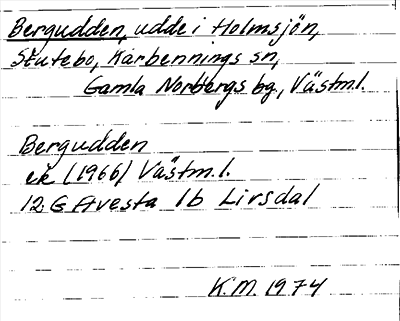 Bergudden, udde i Holmsjön,
Stutebo, Karbennings sn,
Gamla Norbergs bg, Västml.
Bergudden
ek (1966) Västm.l.
12G Avesta 1b Lirsdal
K.M. 1974